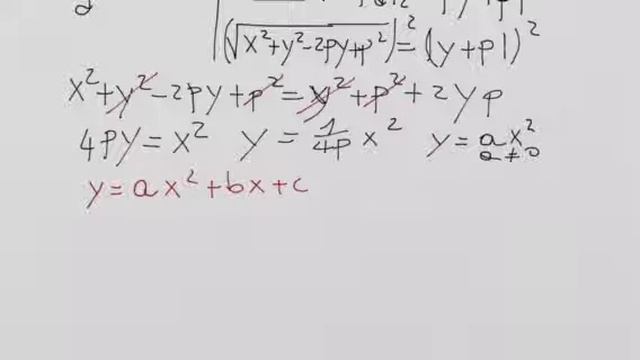 |(√x²+y²-2py+p²)|²=(y+p|)²
x²+y²-2py+p²=y²+p²+2yp
4py=x² y=1/4p x² y=ax²
a≠0
y=ax²+bx+c